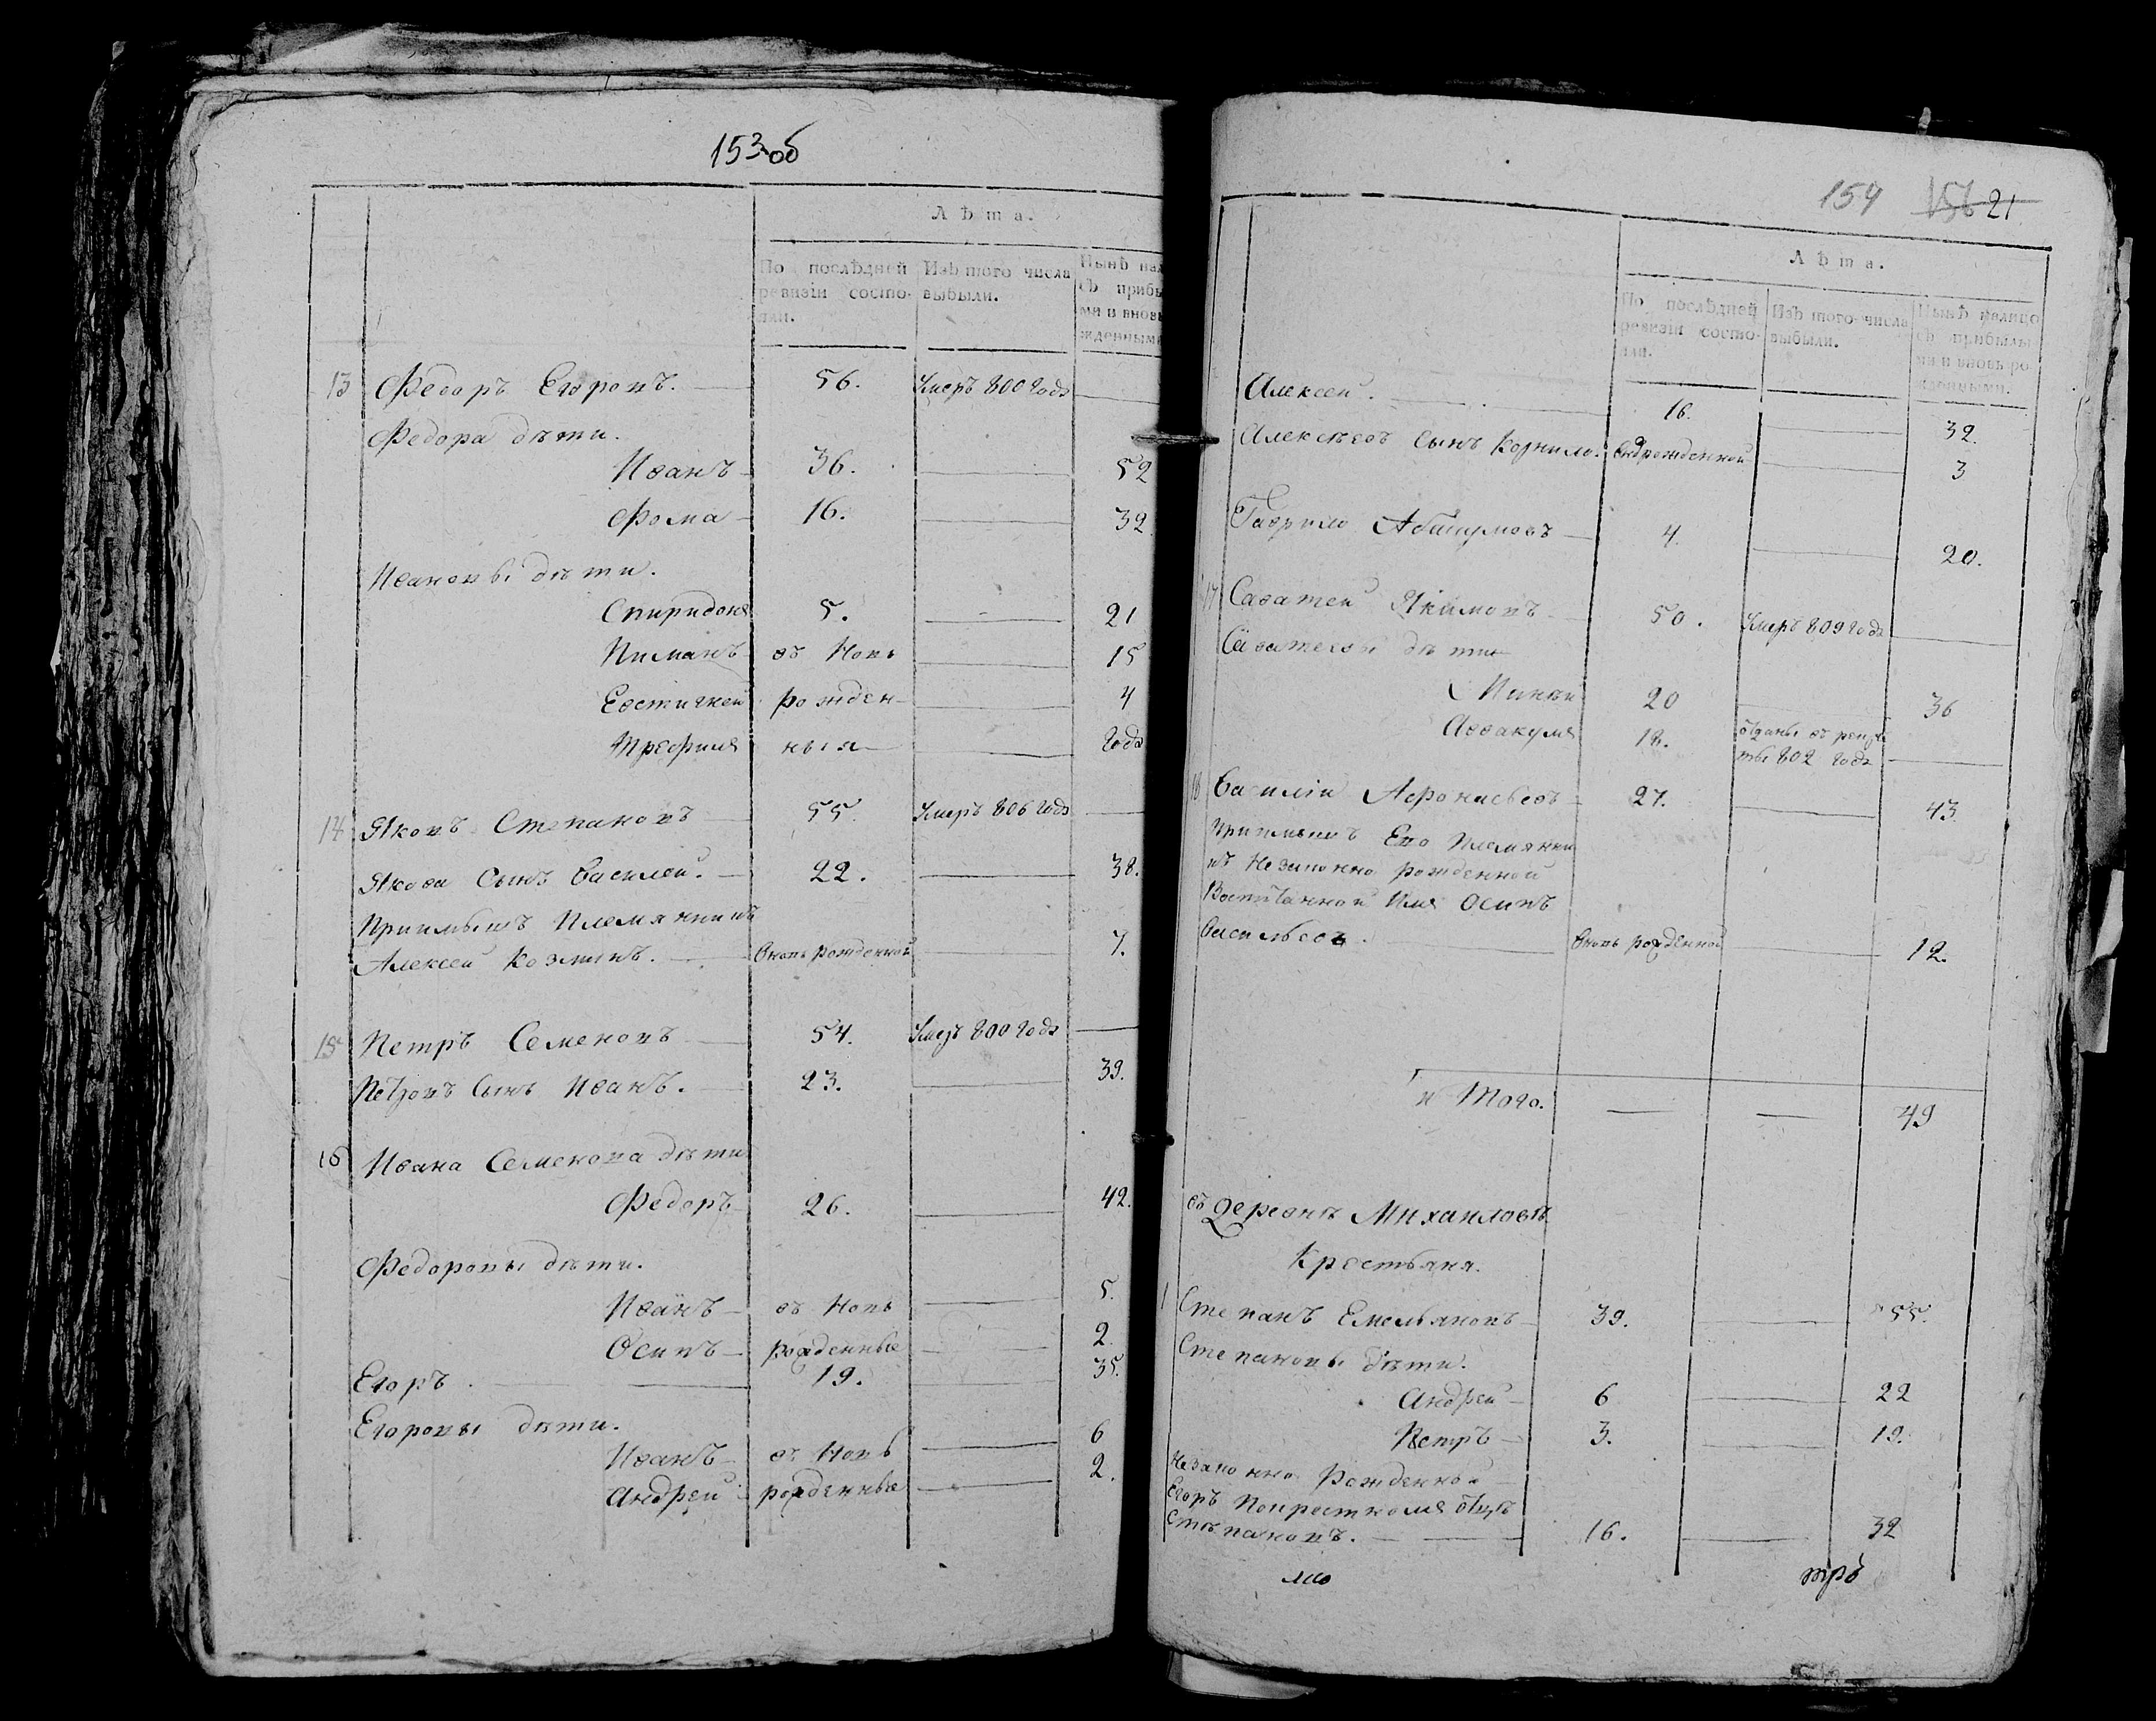 153 об
Лѣта.
По послѣдней Изъ того числа Нынѣ нал
ревизіи состо- выбыли. съ прибы
яли. ми и вновь
жденными
13 Федоръ Егоровъ. 56. Умеръ 800 Года
Федора дѣти.
Иванъ 36. 52
Фома 16. 32
Ивановы дѣти.
Спиридонъ 5. 21
Пиманъ въ Новь 15
Евстигней рожден- 4
Трефилъ ныя Года
14 Яковъ Степановъ 55. Умеръ 806 Года
Якова Сынъ Василей. 22. 38.
Приимышъ Племянникъ
Алексей Козминъ. Вновь рожденной 7.
15 Петръ Семеновъ 54. Умеръ 800 Года
Петровъ Сынъ Иванъ. 23. 39.
16 Ивана Семенова дѣти
Федоръ 26. 42.
Федоровы дѣти.
Иванъ въ Новь 5.
Осипъ рожденные 2.
Егоръ 19. 35.
Егоровы дѣти.
Иванъ въ Новь 6
Андрей рожденные 2.
154 156 21
Лѣта.
По послѣдней Изъ того числа Нынѣ налицо
ревизіи состо- выбыли. съ прибылы
яли. ми и вновь ро-
жденными.
Алексей. 16. 32.
Алексѣевъ Сынъ Корнило. рожденной 3
Гаврило Абакумовъ 4. 20.
17 Саватей Якимовъ 50. Умеръ 809 Года
Саватеевы дѣти
20 36
Аввакумъ 18. отданъ въ рекру
ты 802 Года
18 Василiй Афонасьевъ 27. 43.
Приимышъ Ево Племянни
къ Незаконно рожденной
Имя Осипъ
Васильевъ. Вновь рожденной 12.
и Того. 49
въ Деревнѣ Михаиловке
Крестьяня.
1 Степанъ Емельяновъ 39. 55.
Степановы дѣти.
Андрей 6 22
Петръ 3. 19.
Незаконно Рожденной
Егоръ Покрестномя отцѣ
Степановъ. 16. 32